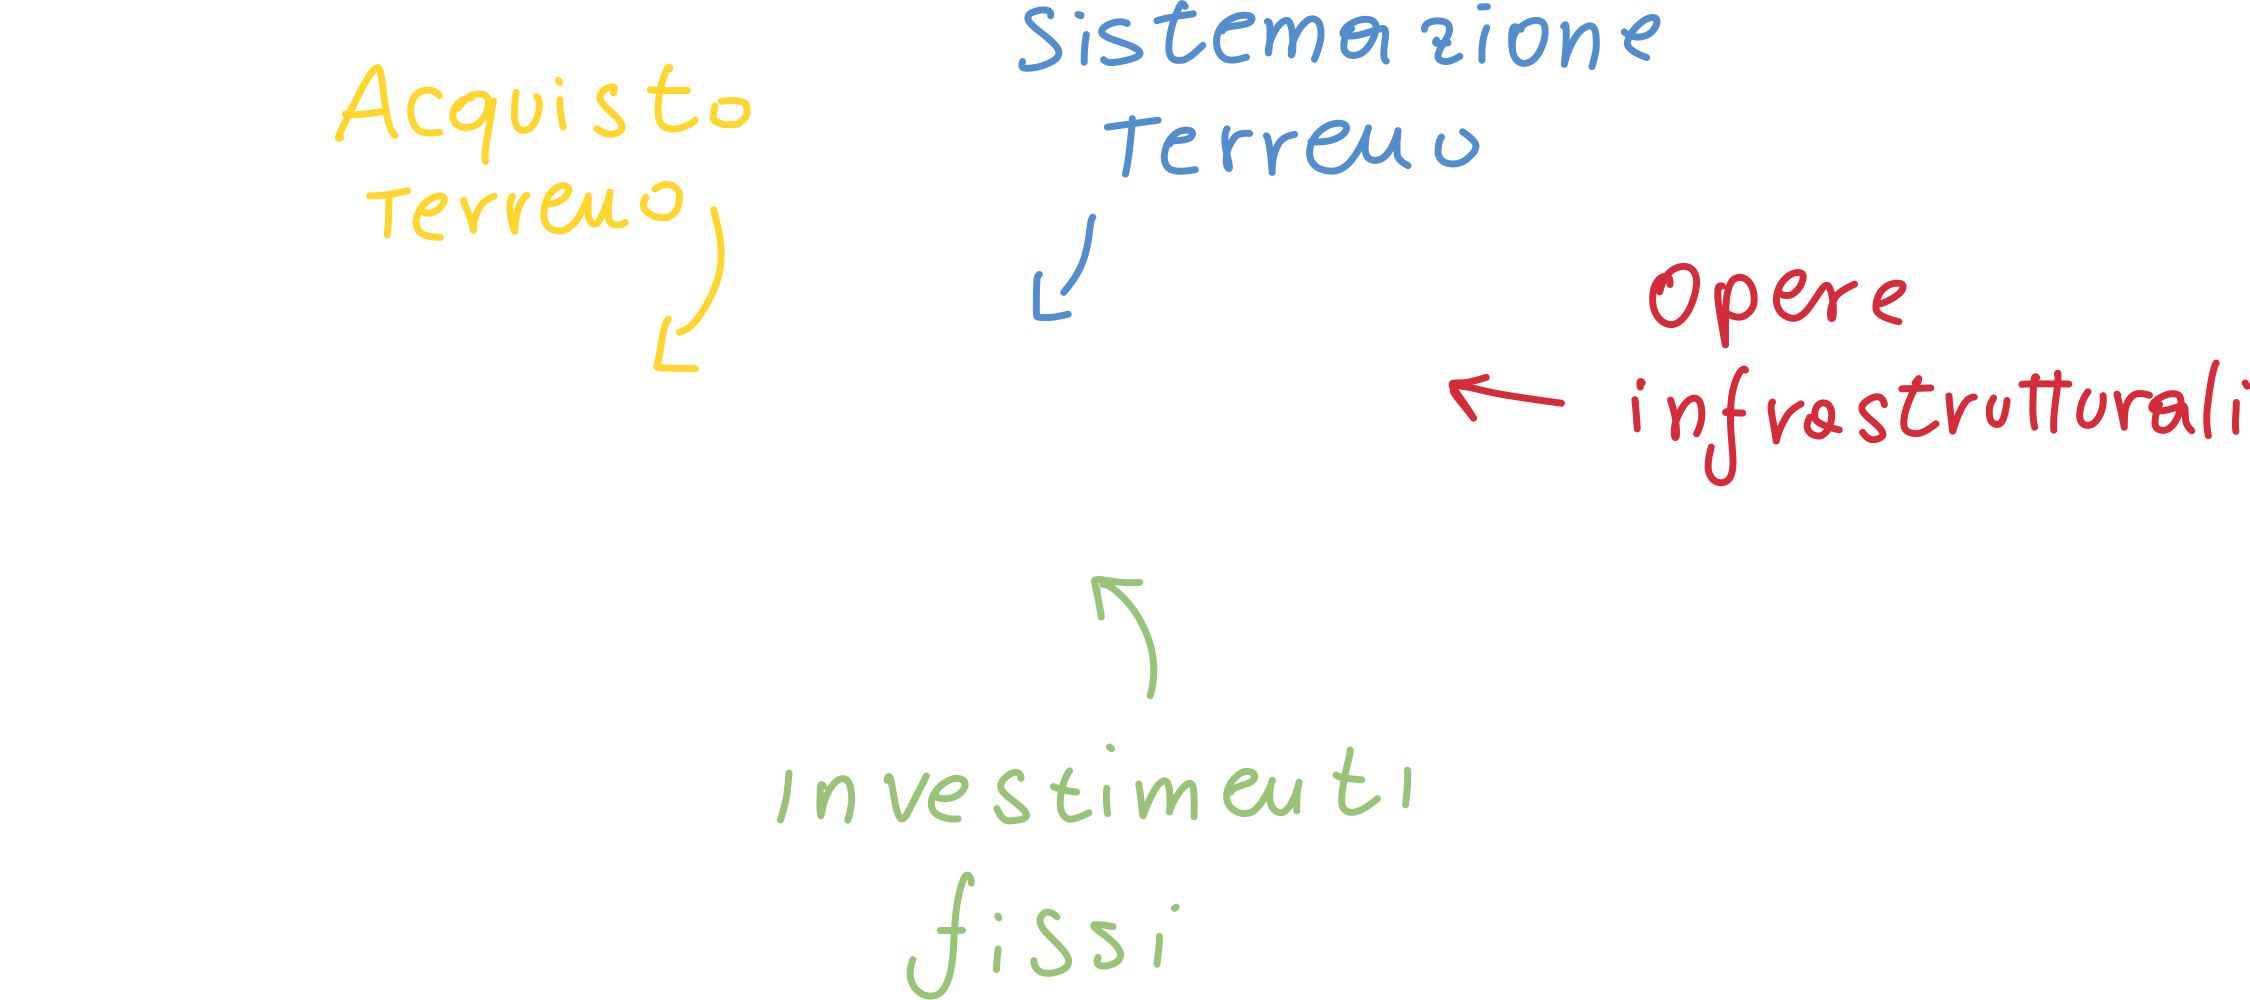 Acquisto
Terreno
Sistemazione
Terreno
Opere
infrastrutturali
Investimenti
fissi